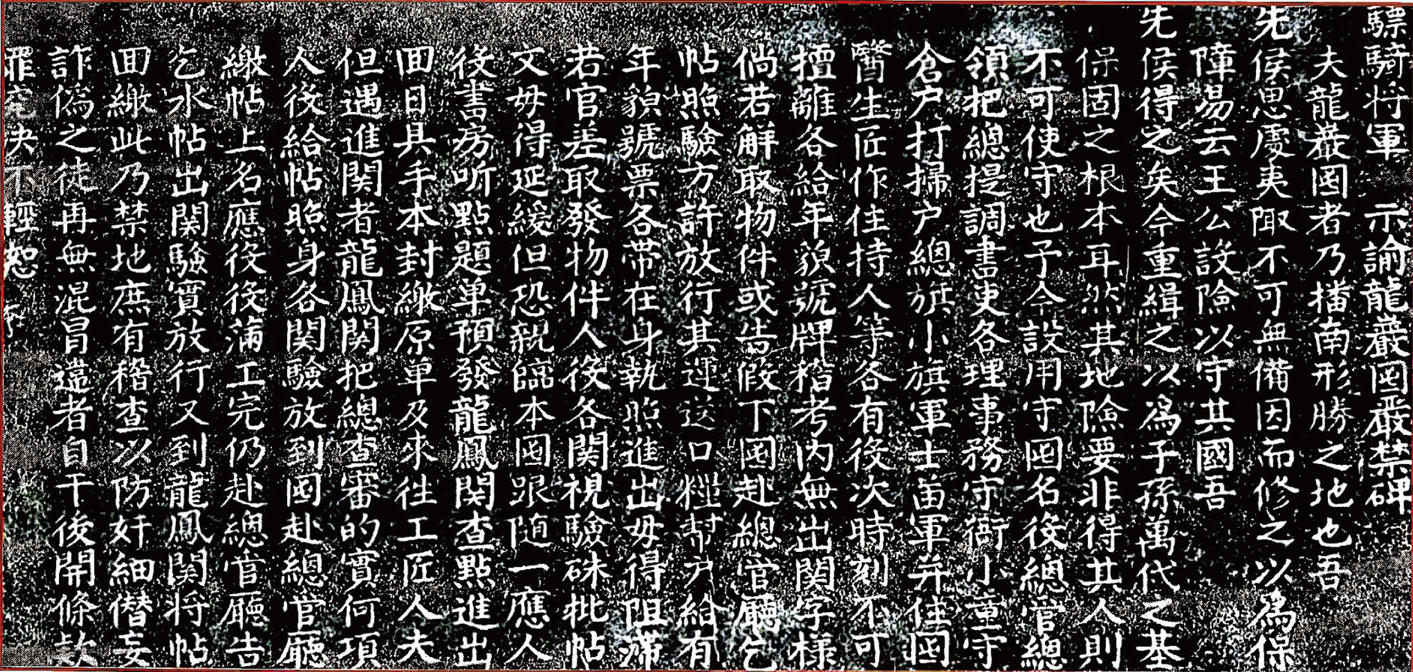 驃騎將軍 示諭龍巖囤嚴禁碑
夫龍巖囤者乃播南形勝之地也吾
先侯思處夷陬不可無備因而修之以爲保
障易云王公設險以守其國吾
先侯得之矣今重緝之以爲子孫萬代之基
保固之根本耳然其地險要非得其人則
不可使守也予今設用守囤名役總官總
領把總提調書吏各理事務守衙小童守
倉户打掃户總旗小旗軍士苗軍并住囤
醫生匠作住持人等各有役次時刻不可
擅離各給年貌號牌稽考內無出関字樣
倘若解取物件或告假下囤赴總官廳乞
帖照驗方許放行其運送口糧幇户給有
年貌號票各帶在身執照進出毋得阻滯
若官差取發物件人役各関視驗硃批帖
文毋得延緩但恐親臨本囤跟随一應人
役書房听點題单預發龍鳳関查點進出
囬日具手本封繳原单及來往工匠人夫
但遇進関者龍鳳関把總查審的實何項
人役給帖照身各関驗放到囤赴總官廳
繳帖上名應役役滿工完仍赴總官廳告
乞水帖出関驗實放行又到龍鳳関将帖
囬繳此乃禁地庶有稽查以防奸細僭妄
詐偽之徒再無混冒違者自干後開條款
罪究决不輕恕